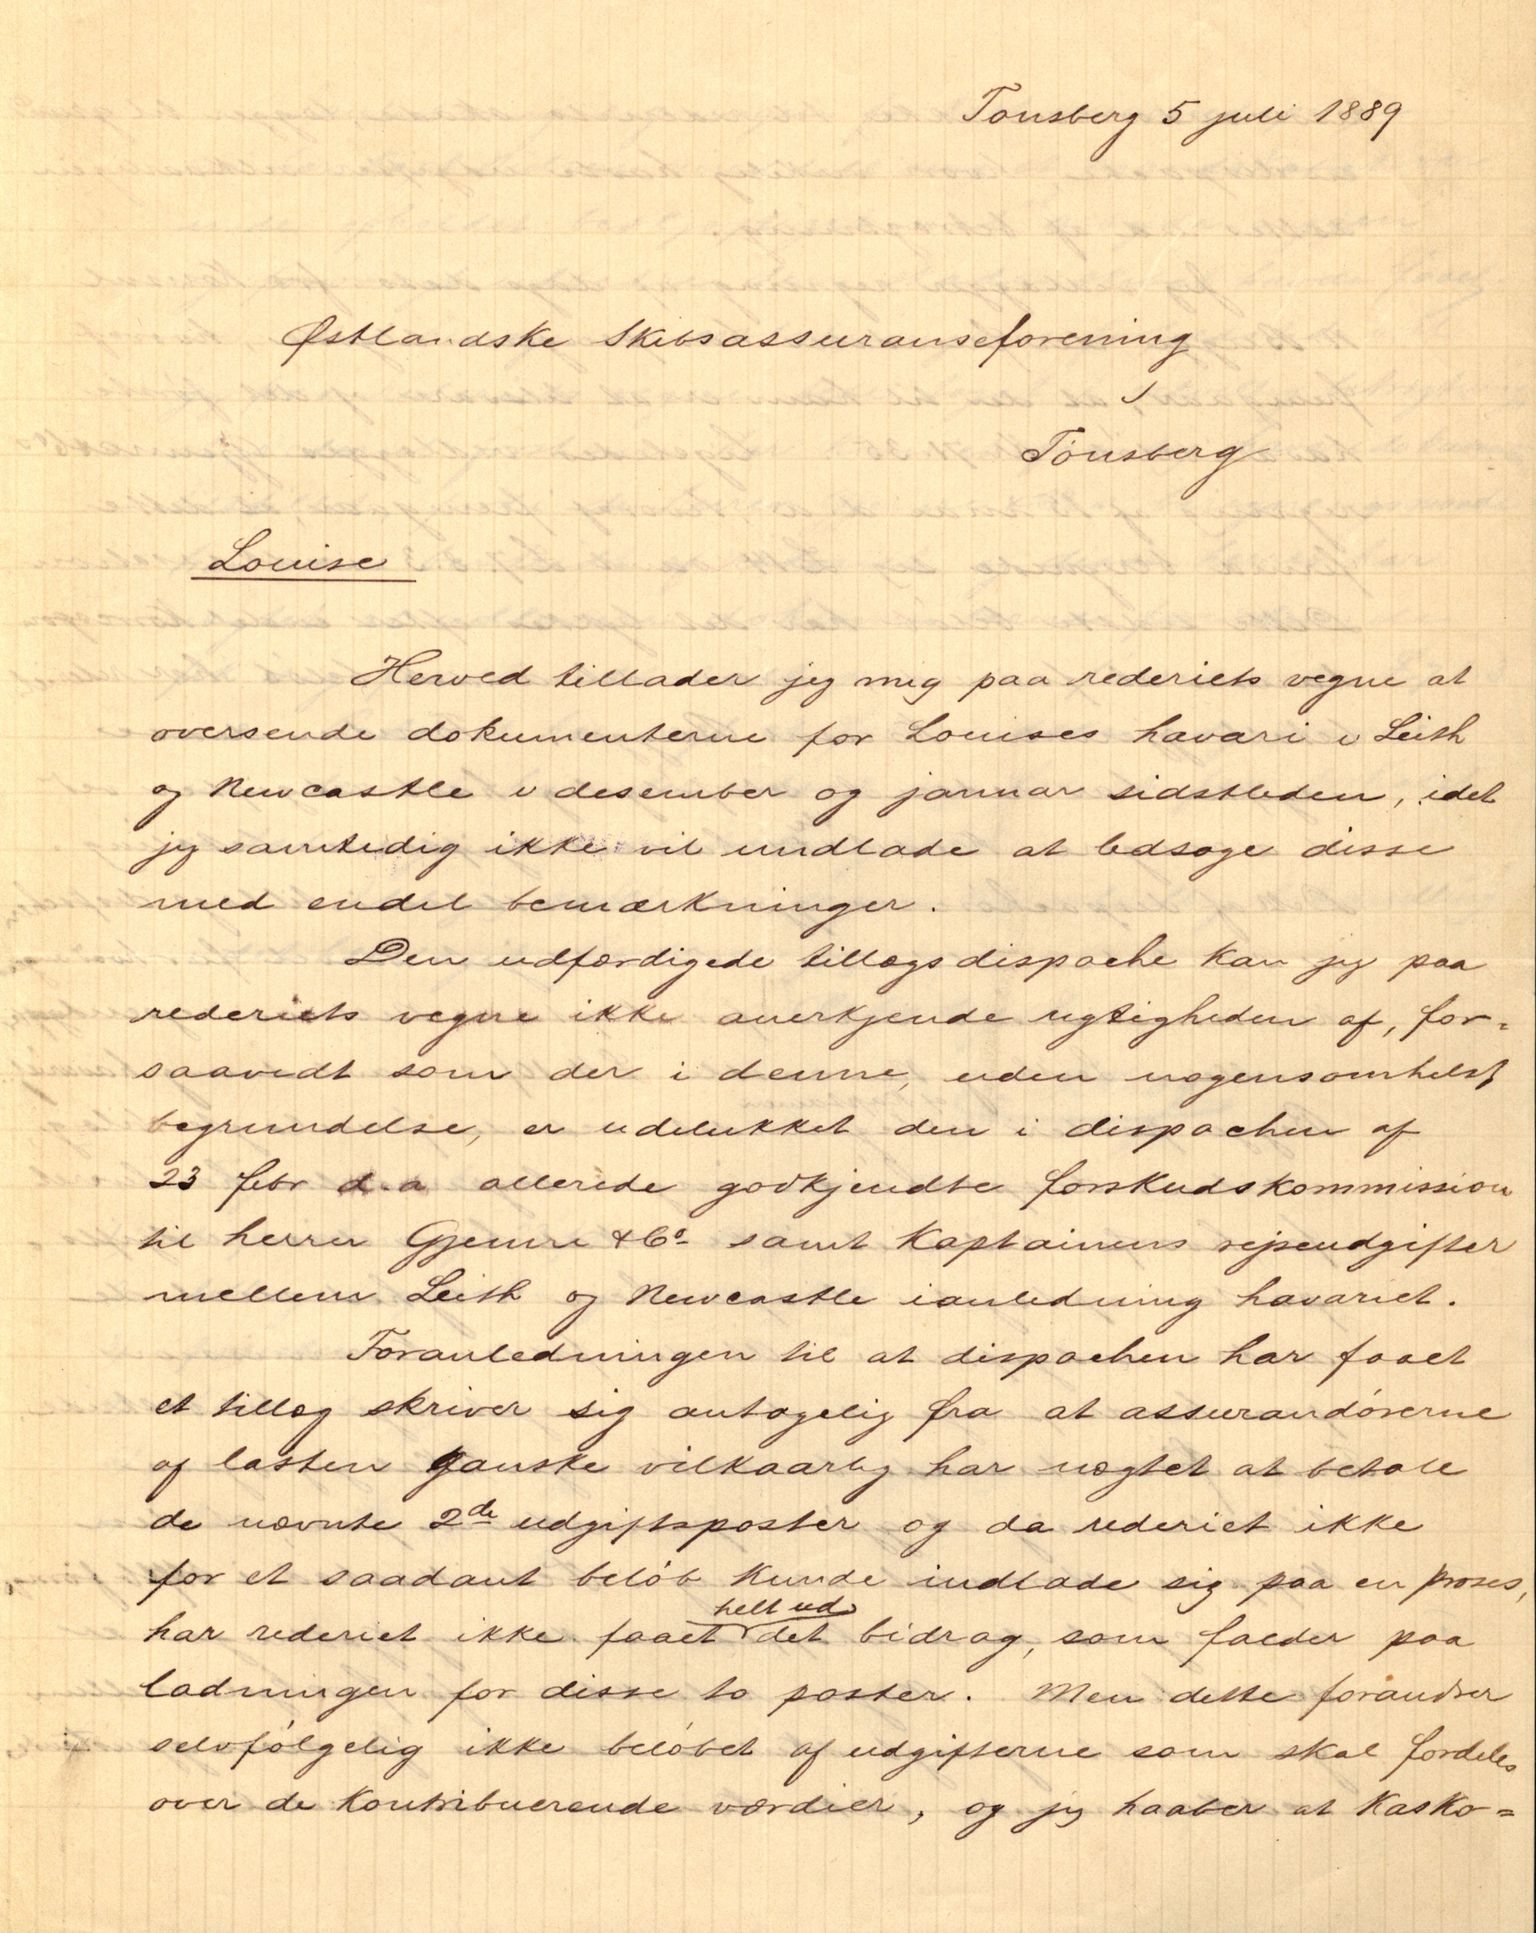 Tönsberg 5 juli 1889
Østlandske Skibsassuranseforening
i
Tönsberg
Louise
Herved tillader jeg mig paa rederiets vegne at
oversende dokumenterne for Louises havari i Leith
og Newcastle i desember og januar sidstleden, idet
jeg samtidig ikke vil undlade at ledsage disse
med endel bemærkninger.
Den udfærdigede tillægsdispache kan jeg paa
rederiets vegne ikke anerkjende rigtigheden af, for-
saavidt som der i denne, uden nogensomhelst
begrundelse, er udelukket den i dispachen af
23 febr d.a allerede godkjendte forskudskommission
til herrer Gjemre & Co samt kaptainens rejseudgifter
mellem Leith og Newcastle ianledning havariet.
Foranledningen til at dispachen har faaet
et tillæg skriver sig antagelig fra at assurandörerne
af lasten ganske vilkaarlig har nægtet at betale
de nævnte 2de udgiftsposter og da rederiet ikke
for et saadant belöb kunde indlade sig paa en proses,
har rederiet ikke faaet helt ud det bidrag, som falder paa
ladningen for disse to poster. Men dette forandrer
selvfölgelig ikke belöbet af udgifterne som skal fordeles
over de kontribuerende værdier, og jeg haaber at kasko=